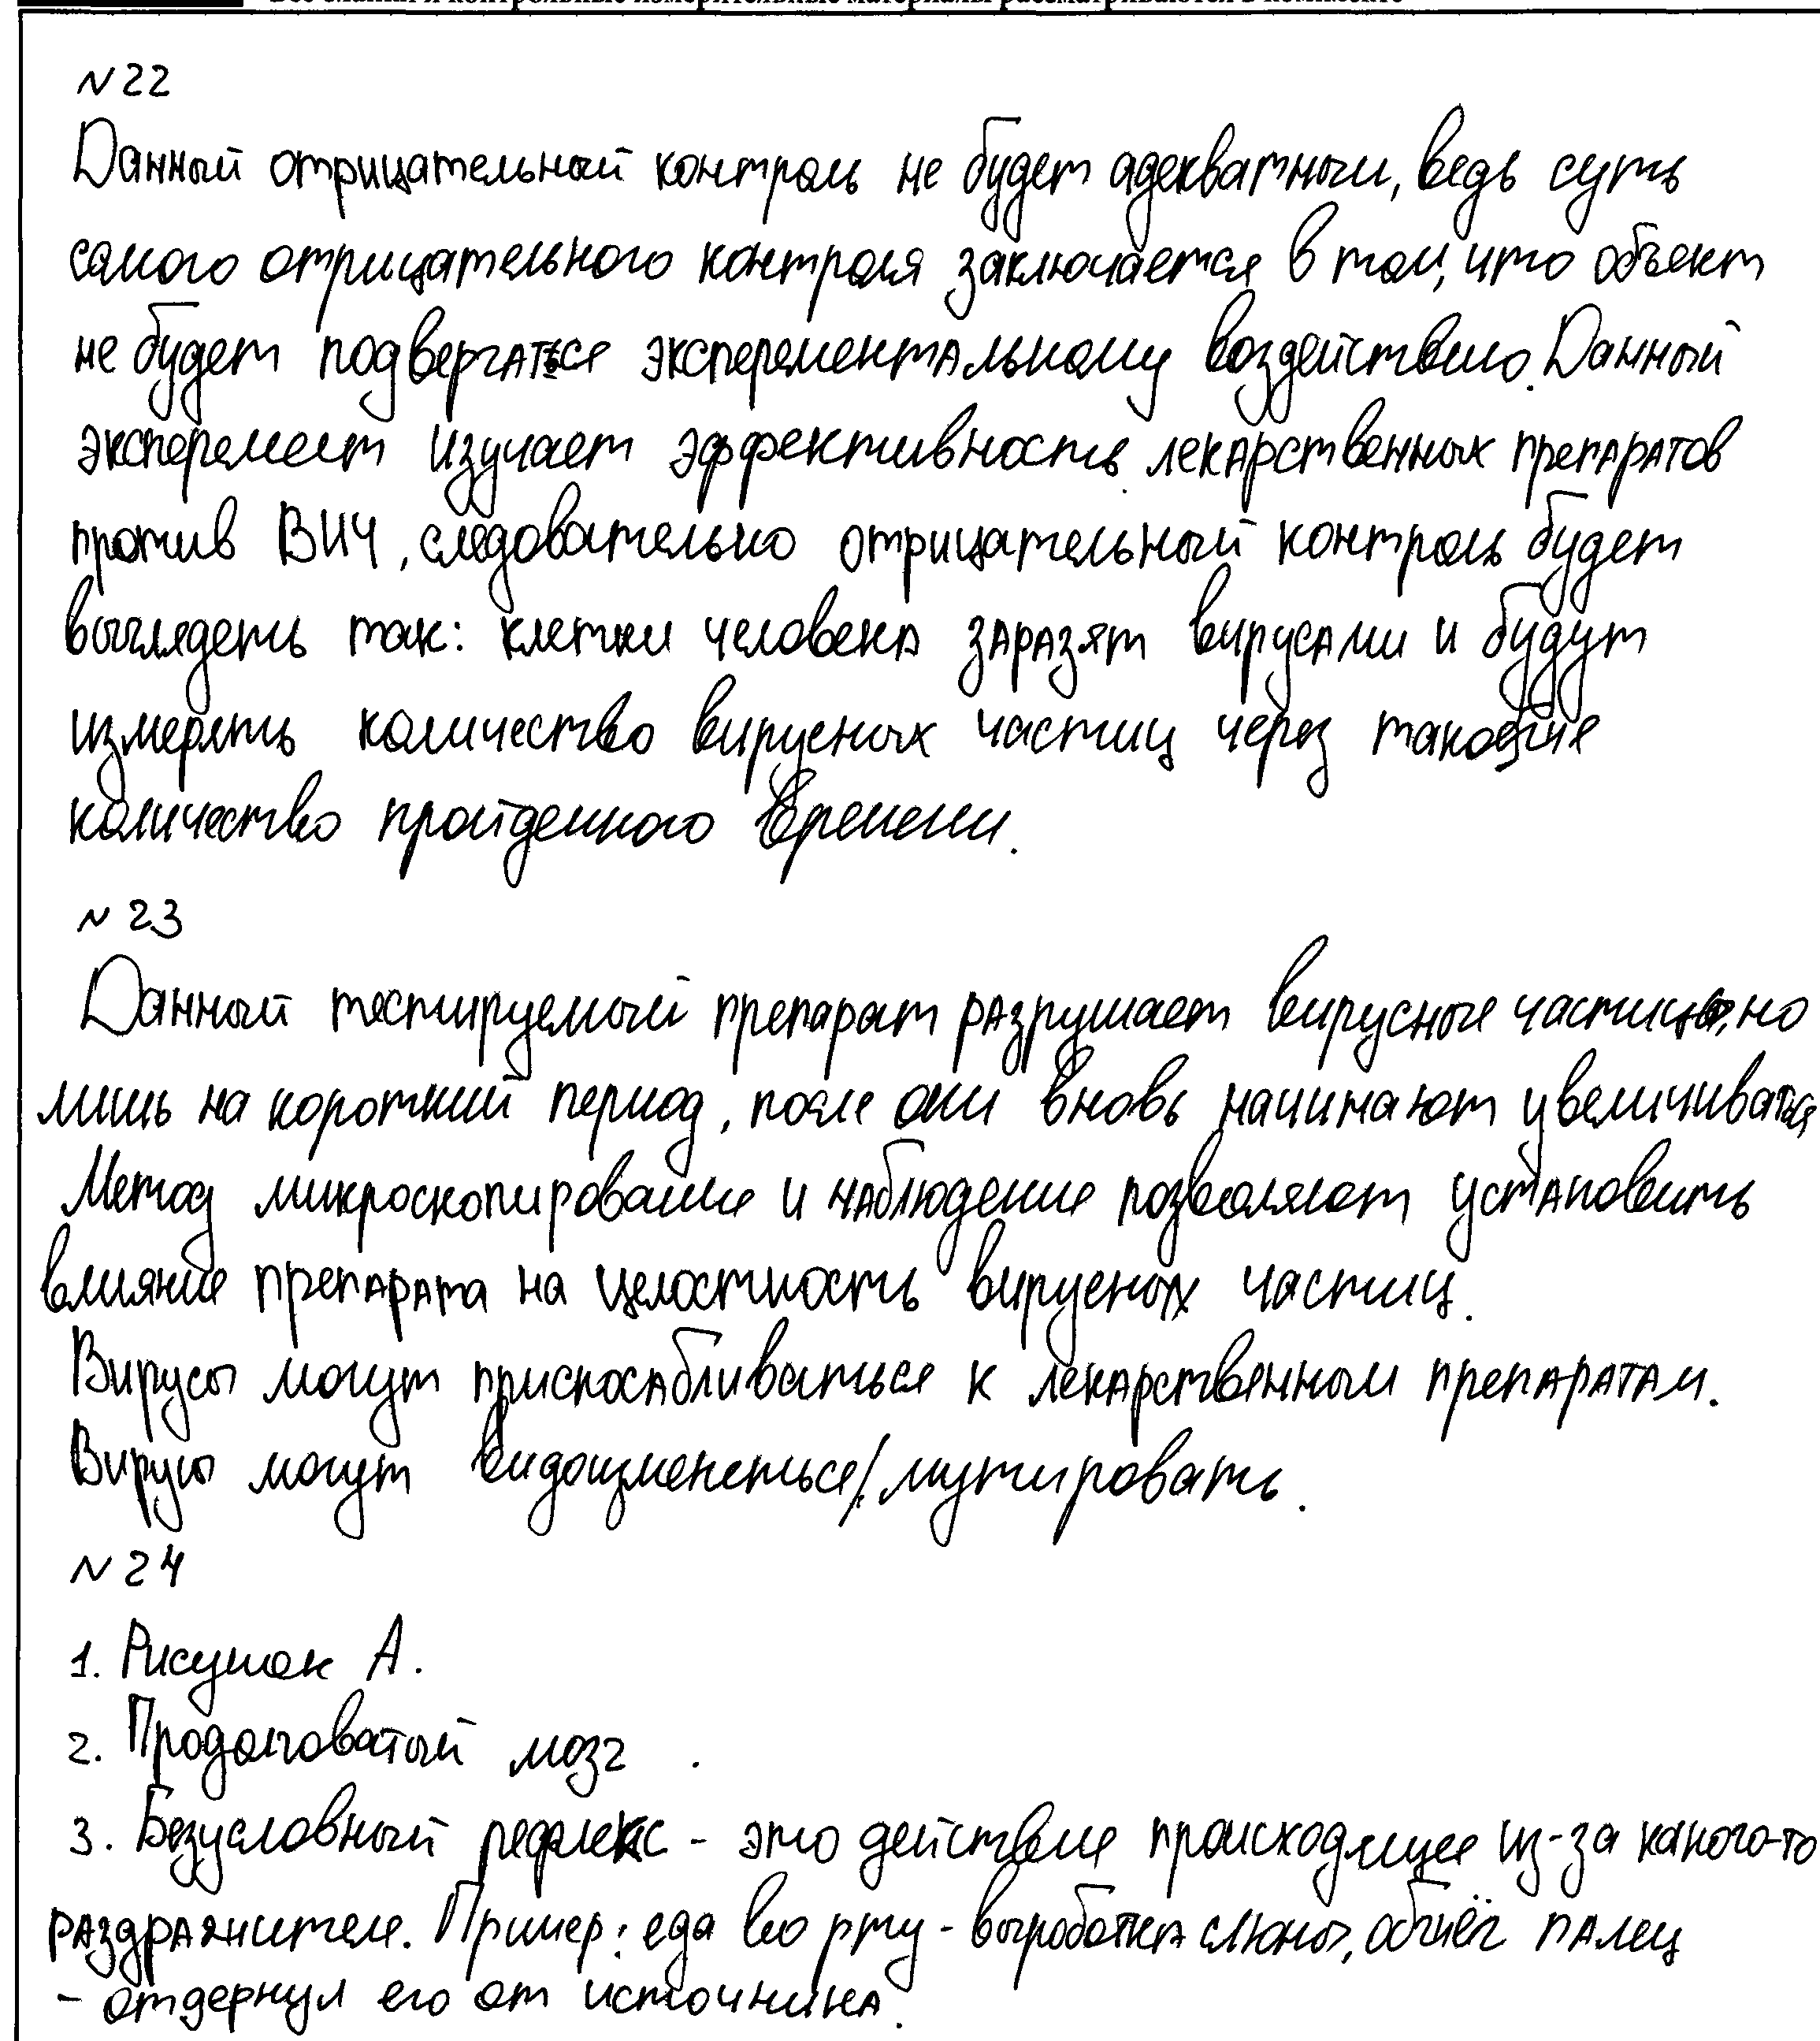 Все бланки и контрольные измерительные материалы рассматриваются в комплекте
№22
Данный отрицательный контроль не будет адекватным, ведь суть
самого отрицательного контроля заключается в том, что объект
не будет подвергаться эксперементальному воздействию. Данный
эксперемент изучает эффективность лекарственных препаратов
против ВИЧ, следовательно отрицательный контроль будет
выглядеть так: клетки человека заразят вирусами и будут
измерять количество вирусных частиц через такое же
количество пройденного времени.
№23
Данный тестируемый препарат разрушает вирусные частицы, но
лишь на короткий период, после они вновь начинают увеличиваться
Метод микроскопирование и наблюдение позволяют установить
влияние препарата на целостность вирусных частиц.
Вирусы могут приспосабливаться к лекарственным препаратам.
Вирусы могут видоизменяться/мутировать.
№24
1. Рисунок А.
2. Продолговатый мозг.
3. Безусловный рефлекс - это действие происходящее из-за какого-то
раздражителя. Пример: еда во рту - выработка слюны, обжёг палец
- отдернул его от источника.